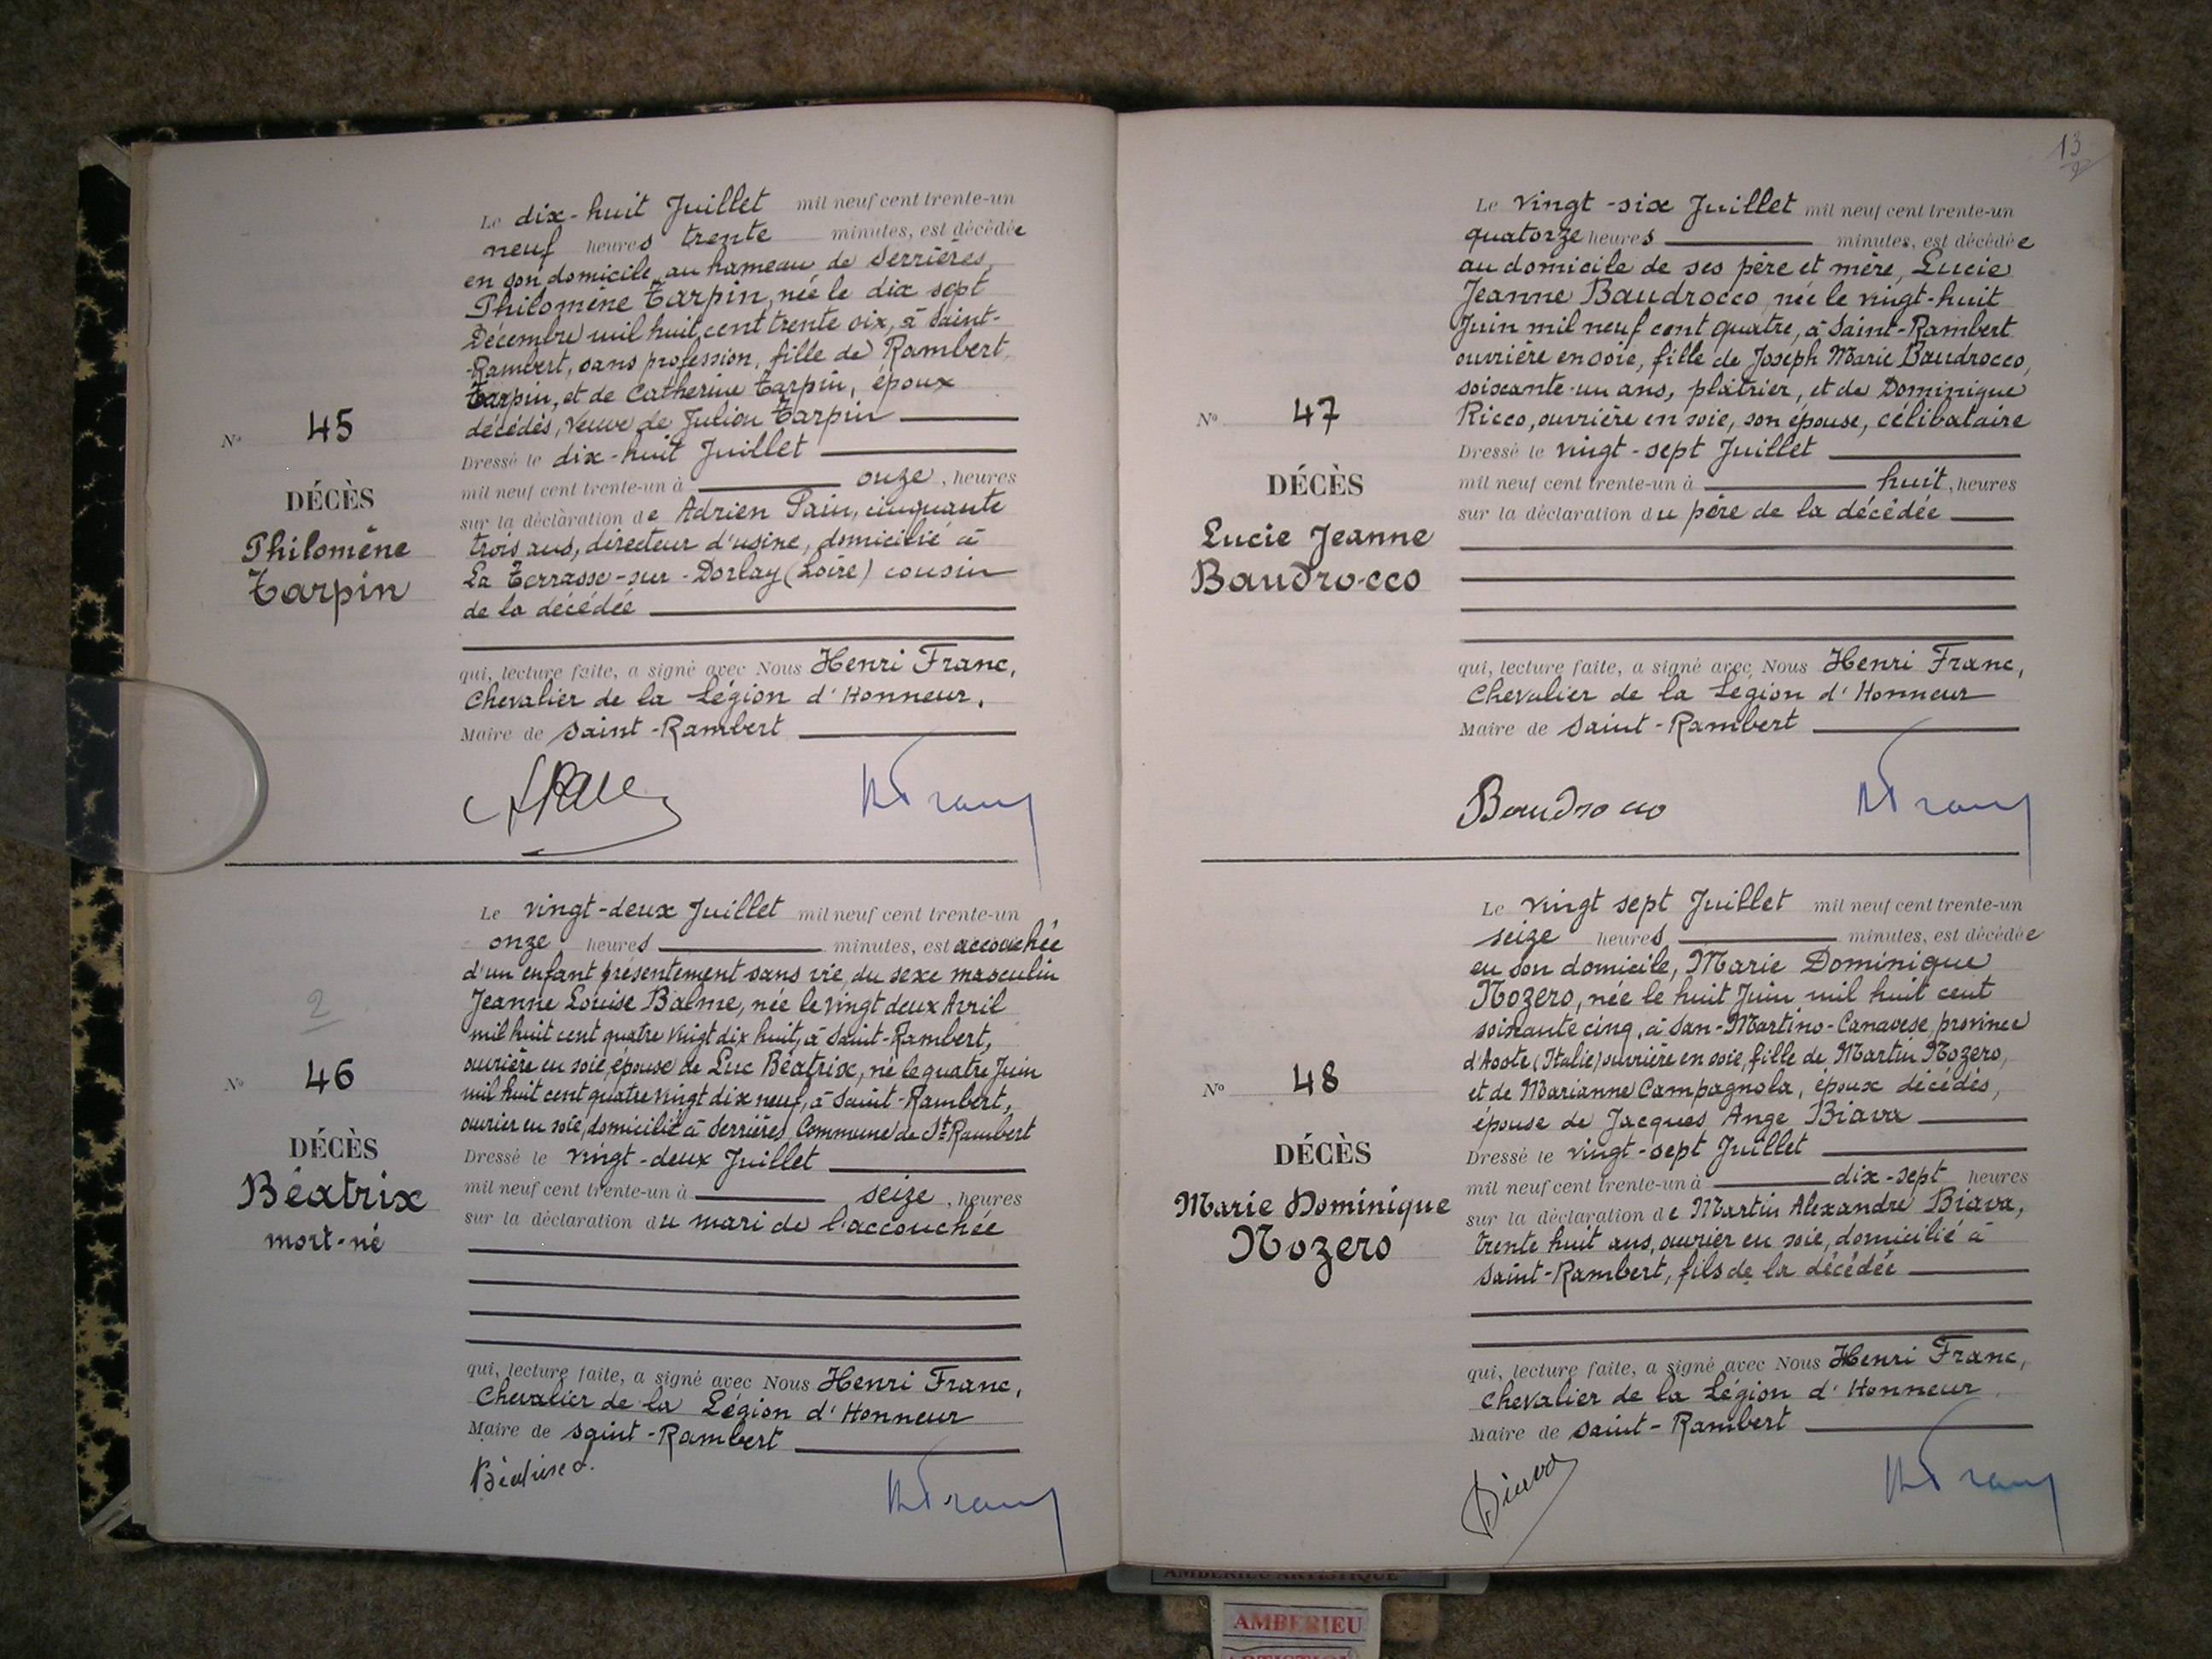 Le dix-huit Juillet mil neuf cent trente-un
neuf heures trente minutes, est décédée
en son domicile, au hameau de Serrières,
Philomène Tarpin, née le dix sept
Décembre mil huit cent trente six, à Saint-
-Rambert, sans profession, fille de Rambert
Tarpin, et de Catherine Tarpin, époux
décédés, veuve de Julien Tarpin
N° 45
DÉCÈS
Philomène
Tarpin
Dressé le dix-huit Juillet
mil neuf cent trente-un à onze, heures
sur la déclaration de Adrien Pain, cinquante
trois ans, directeur d'usine, domicilié à
La Terrasse-sur-Dorlay (Loire) cousin
de la décédée
qui, lecture faite, a signé avec Nous Henri Franc,
Chevalier de la Légion d'Honneur,
Maire de Saint-Rambert
Le vingt-deux Juillet mil neuf cent trente-un
onze heures minutes, est accouchée
d'un enfant présentement sans vie, du sexe masculin
Jeanne Louise Balme, née le vingt deux Avril
mil huit cent quatre vingt dix huit, à Saint-Rambert,
ouvrière en soie, épouse de Luc Béatrix, né le quatre Juin
mil huit cent quatre vingt dix neuf, à Saint-Rambert,
ouvrier en soie, domicilié à Serrières Commune de St Rambert
2
N° 46
DÉCÈS
Béatrix
mort-né
Dressé le vingt-deux Juillet
mil neuf cent trente-un à seize, heures
sur la déclaration du mari de l'accouchée
qui, lecture faite, a signé avec Nous Henri Franc,
Chevalier de la Légion d'Honneur
Maire de Saint-Rambert
13
Le vingt-six Juillet mil neuf cent trente-un
quatorze heures minutes, est décédée
au domicile de ses père et mère, Lucie
Jeanne Baudrocco née le vingt-huit
Juin mil neuf cent quatre, à Saint-Rambert
ouvrière en soie, fille de Joseph Marie Baudrocco,
soixante-un ans, plâtrier, et de Dominique
Ricco, ouvrière en soie, son épouse, célibataire
N° 47
DÉCÈS
Lucie Jeanne
Baudrocco
Dressé le vingt-sept Juillet
mil neuf cent trente-un à huit, heures
sur la déclaration du père de la décédée
qui, lecture faite, a signé avec Nous Henri Franc,
Chevalier de la Légion d'Honneur
Maire de Saint-Rambert
Baudrocco
Le vingt sept Juillet mil neuf cent trente-un
seize heures minutes, est décédée
en son domicile, Marie Dominique
Nozero, née le huit Juin mil huit cent
soixante cinq, à San-Martino-Canavese, province
d'Aoste (Italie) ouvrière en soie, fille de Martin Nozero,
et de Marianne Campagnola, époux décédés,
épouse de Jacques Ange Biava
N° 48
DÉCÈS
Marie Dominique
Nozero
Dressé le vingt-sept Juillet
mil neuf cent trente-un à dix-sept heures
sur la déclaration de Martin Alexandre Biava,
trente huit ans, ouvrier en soie, domicilié à
Saint-Rambert, fils de la décédée
qui, lecture faite, a signé avec Nous Henri Franc,
Chevalier de la Légion d'Honneur
Maire de Saint-Rambert
Biava
AMBERIEU ARTISTIQUE
AMBERIEU